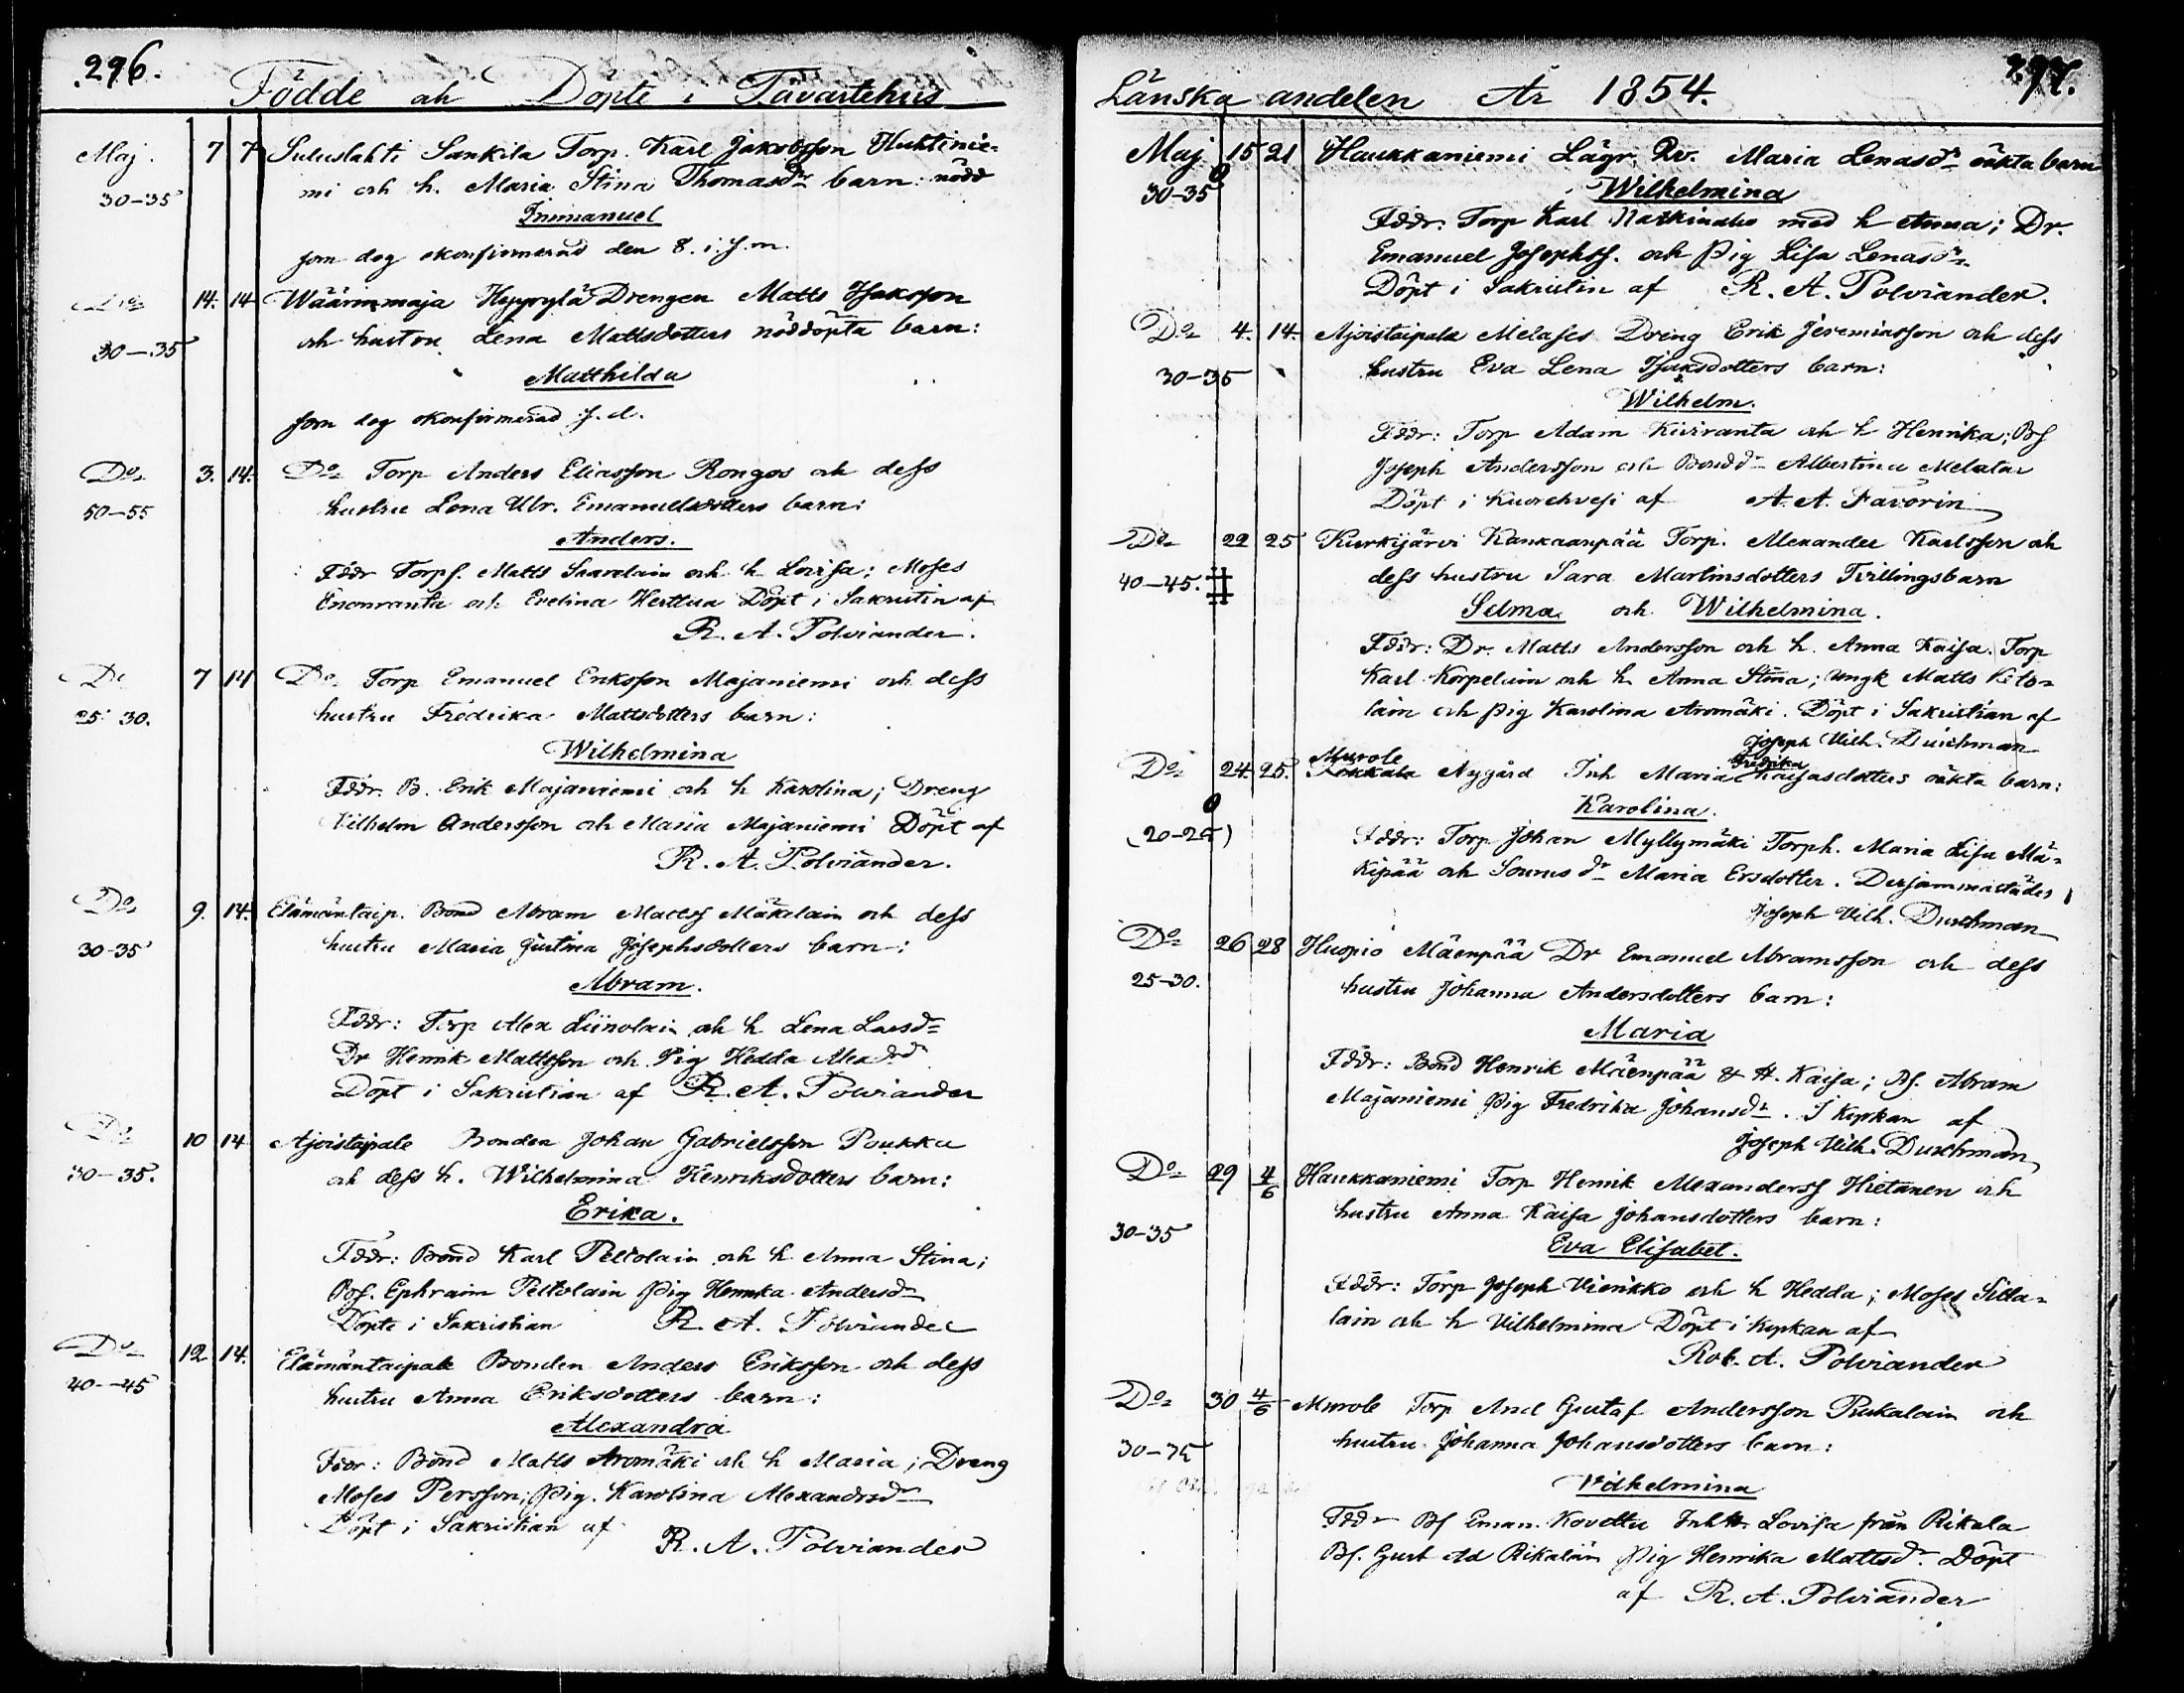 296.
Födde och Döpte i Tavastehus
Maj. 7 7 Suluslahti Sankila Torp. Karl Jakobsson Huhtinie-
30-35 mi och h. Maria Stina Thomasdr barn: nöd
Immanuel
som dog okonfirmerad den 8. i. s. m.
Do 14. 14 Wäärinmaja Hyppylä Drengen Matts Isaksson
30-35 och hustru Lena Mattsdotters nöddöpta barn:
Matthilda
som dog okonfirmerad s. d.
Do 3. 14. Do Torp Anders Eliasson Rongos och dess
50-55 hustru Lena Ulr. Emanuelsdotters barn:
Anders.
Fddr Torps. Matts Saarelain och h Lovisa; Moses
Enonranta och Evelina Herttua Döpt i Sakristin af
R. A. Polviander.
Do 7 14 Do Torp Emanuel Eriksson Majaniemi och dess
25 30. hustru Fredrika Mattsdotters barn:
Wilhelmina
Fddr. B. Erik Majaniemi och h Karolina; Dreng
Vilhelm Andersson och Maria Majaniemi Döpt af
R. A. Polviander.
Do 9. 14. Elämäntaip. Bond Abram Mattss Mäkelain och dess
30-35 hustru Maria Justina Josephsdotters barn:
Abram.
Fddr: Torp Alex Liinolain och h Lena Larsdr
Dr Henrik Mattsson och Pig Hedda Alexdr
Döpt i Sakristian af R. A. Polviander
Do 10 14 Ajoistaipale Bonden Johan Gabrielsson Poukka
30-35. och dess h. Wilhelmina Henriksdotters barn:
Erika.
Fddr: Bond Karl Peltolain och h Anna Stina;
Bs. Ephraim Peltolain Pig Henrika Andersdr
Döpte i Sakristian R. A. Polviander
Do 12 14. Elämäntaipale Bonden Anders Eriksson och dess
40-45 hustru Anna Eriksdotters barn:
Alexandra
Fddr: Bond Matts Aromäki och h Maria; Dreng
Moses Persson; Pig. Karolina Alexandersdr
Döpt i Sakristian af
R. A. Polviander
297.
Länska andelen År 1854.
Maj 15 21 Haukkaniemi Lägr. Qv. Maria Lenasdr oäkta barn
30-35 Wilhelmina
Fddr: Torp Karl med h Anna; Dr.
Emanuel Josephss. och Pig Lisa Lenasdr
Döpt i Sakristin af R. A. Polviander.
Do 4. 14. Ajoistaipale Melases Dreng Erik Jeremiasson och dess
30-35 hustru Eva Lena Isaksdotters barn:
Wilhelm.
Fddr: Torp Adam Kiviranta och h Henrika; Bs
Joseph Andersson och Bonddr Albertina Melalar
Döpt i Kuorehvesi af A. A. Favorin
Do 22 25 Kurkijärvi Kankaanpää Torp. Alexander Karlsson och
40-45. dess hustru Sara Martinsdotters Tvillingsbarn
Selma och Wilhelmina.
Fddr: Dr. Matts Andersson och h. Anna Kaisa. Torp
Karl Korpelain och h. Anna Stina; Ungk Matts Kito-
lain och Pig Karolina Aromäki. Döpt i Sakristian af
Joseph Vilh. Durchman
Murole Fredrika
Do 24. 25. Nygård Inh Maria Kaisasdotters oäkta barn:
Karolina.
(20-25) Fddr: Torp Johan Myllymäki Torph. Maria Lisa Mä-
kipää och Maria Ersdotter. Dersammastädes
Joseph Vilh. Durchman
Do 26 28 Huopio Mäenpää Dr Emanuel Abramsson och dess
25-30. hustru Johanna Andersdotters barn:
Maria
Fddr: Bond Henrik Mäenpää & H. Kaisa; Bs. Abram
Majaniemi Pig Fredrika Johansdr. I Kyrkan af
Joseph Vilh. Durchman
Do 29 4/6 Haukkaniemi Torp Henrik Alexanderss Hietanen och
30-35 hustru Anna Kaisa Johansdotters barn:
Eva Elisabet.
Fddr: Torp Joseph Vienikko och h Hedda; Moses Silla-
lain och h Vilhelmina Döpt i Kyrkan af
Rob. A. Polviander
Do 30 4/6 Murole Torp And Gustaf Andersson Rukalain och
30-35 hustru Johanna Johansdotters barn:
Vilhelmina
Fddr Bs Eman. Kovettu Inh Lovisa från Rikala
Bs. Gust Ad Rikalain Pig Henrika Mattsdr. Döpt
af R. A. Polviander